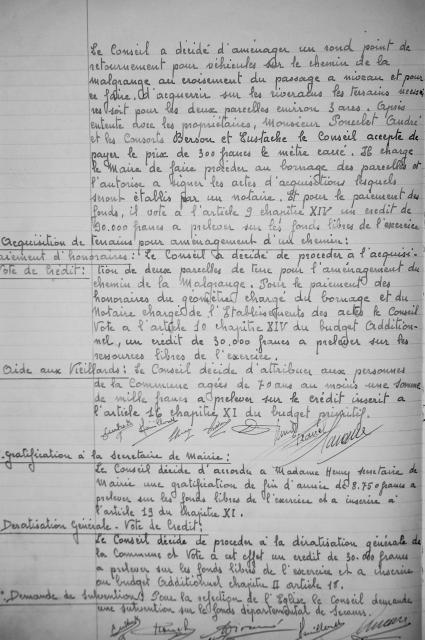 Le Conseil a décidé d'aménager un rond point de
retournement pour véhicules sur le chemin de la
malgrange au croisement du passage a niveau et pour
ce faire, d'acquerrir sur les riverains les terrains neces
res soit pour les deux parcelles environ 3 ares. Après
entente avec les propriétaires, Monsieur Poncelet André
et les Consorts Berson et Eustache le Conseil accepte de
payer le prix de 300 francs le mètre carré. Il charge
le Maire de faire procéder au bornage des parcelles et
l'autorise a signer les actes d'acquisitions lesquels
seront établis par un notaire. Et pour le paiement des
fonds, il vote a l'article 9 chapitre XIV un credit de
90.000 francs a prelever sur les fonds libres de l'exercice
Acquisition de terrains pour aménagement d'un chemin:
aiement d'honoraires: Le Conseil a décidé de proceder a l'acquisi-
Vote de Crédit: tion de deux parcelles de terre pour l'aménagement du
chemin de la Malgrange. Pour le paiement des
honoraires du géomètre chargé du bornage et du
Notaire chargé de l'Etablissements des actes le Conseil
Vote a l'article 10 chapitre XIV du budget Addition-
nel, un crédit de 30.000 francs a prelever sur les
ressources libres de l'exercice.
Aide aux Vieillards: Le Conseil décide d'attribuer aux personnes
de la Commune agés de 70 ans au moins une somme
de mille francs a prelever sur le crédit inscrit a
l'article 16 chapitre XI du budget primitif.
Gratification a la secretaire de Mairie:
Le Conseil décide d'accorder a Madame Henry secretaire de
Mairie une gratification de fin d'année de 8.750 francs a
prelever sur les fonds libres de l'exercice et a inscrire a
l'article 19 du chapitre XI.
Deratisation Générale - Vote de Credit:
Le Conseil décide de proceder a la dératisation générale de
la Commune et Vote a cet effet un credit de 30.000 francs
a prelever sur les fonds libres de l'exercice et a inscrire
au budget Additionnel chapitre II article 18.
Demande de subvention: Pour la refection de l'Eglise le Conseil demande
une subvention sur le fonds départemental de Secours.